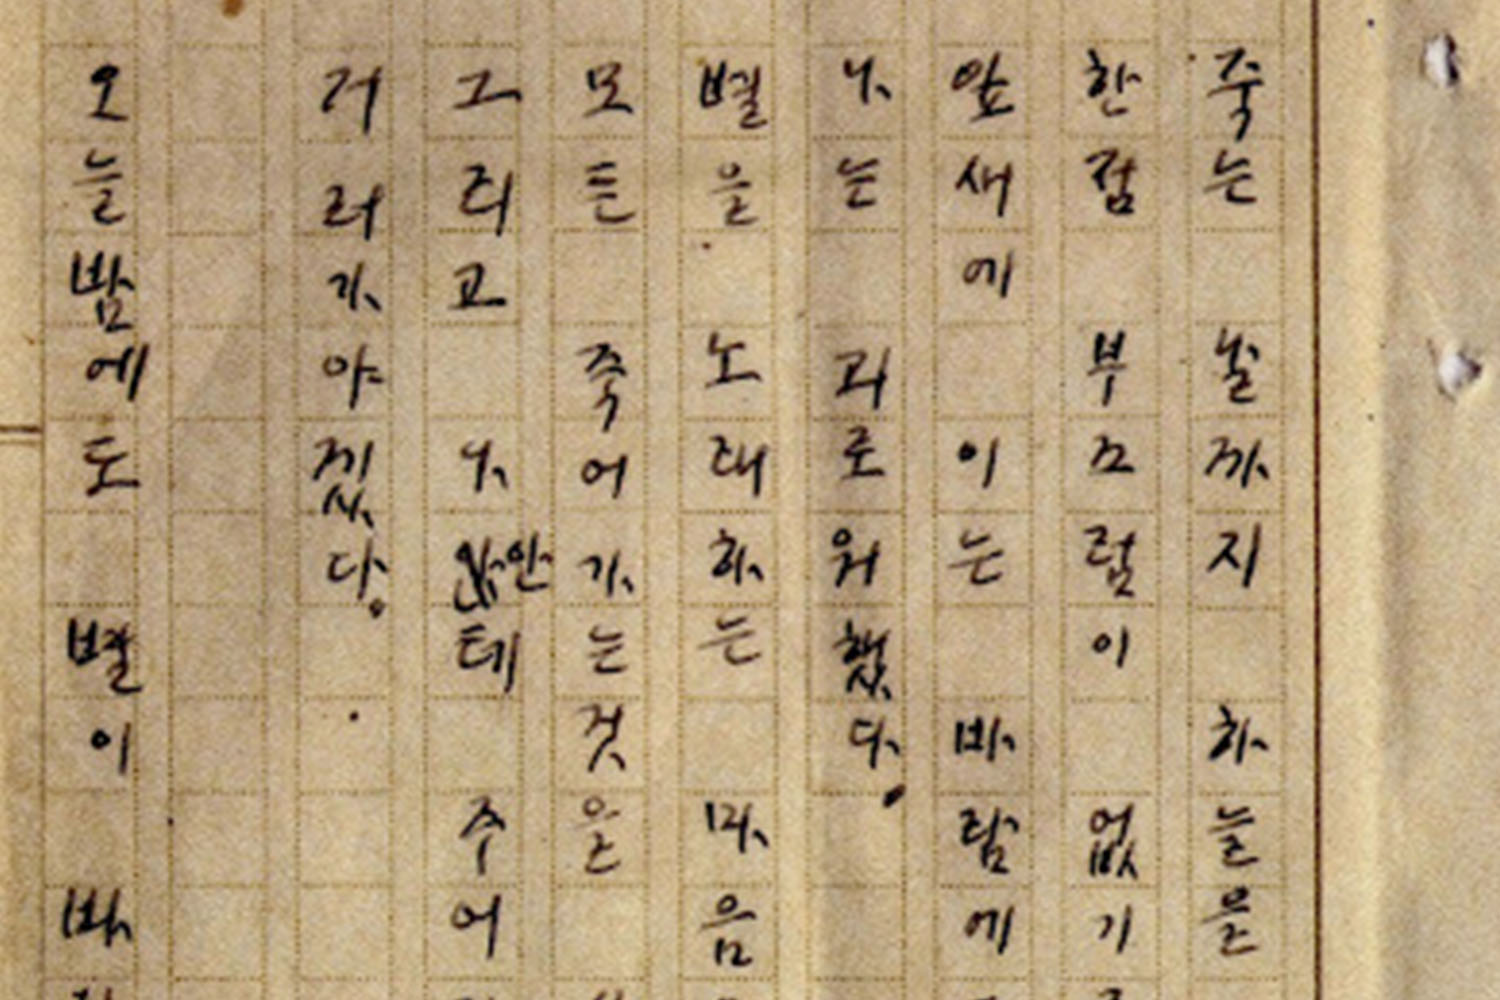 죽는 날까지 하늘을
한점 부끄럼이 없기
잎새에 이는 바람에
나는 괴로워했다.
별을 노래하는 마음
모든 죽어가는것을
그리고 나안테 주어
거러가야겠다.
오늘밤에도 별이 바